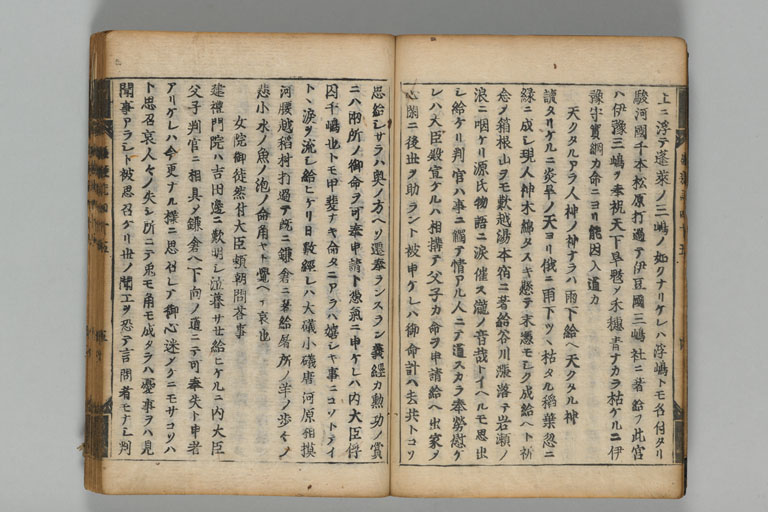 上ニ浮テ蓬莱ノ三嶋ノ如クナリケレハ浮嶋トモ名付タリ
駿河國千本松原打過テ伊豆國三嶋社ニ著給フ此宮
ハ伊豫三嶋ヲ奉祝天下旱魃ノ禾穗青ナカラ枯ケルニ伊
豫守實綱カ命ニヨリ能因入道カ
天クタルアラ人神ノ神ナラハ雨下給ヘ天クタル神
讀タリケルニ炎旱ノ天ヨリ俄ニ雨下ツヽ枯タル稻葉忽ニ
緑ニ成シ現人神木綿タスキ懸テ末憑モシク成給ヘト祈
念ノ箱根山ヲモ歎越湯本宿ニ著給谷川漲落テ岩瀬ノ
浪ニ咽ケリ源氏物語ニ涙催ス瀧ノ音哉トイヘルモ思出
シ給ケリ判官ハ事ニ觸テ情アル人ニテ道スカラ奉勞慰ケ
レハ大臣殿宣ケルハ相構テ父子カ命ヲ申請給ヘ出家ヲ
心閑ニ後世ヲ助ラント被申ケレハ御命計ハ去共トコソ
思給シサラハ奥ノ方ヘソ還奉ランスラン義經カ勲功ノ賞
ニハ兩所ノ御命ヲ可奉申請ト憑氣ニ申ケレハ内大臣俘
囚千嶋也トモ甲斐ナキ命タニアラハ嬉シキ事ニコソトテイ
トヽ涙ヲ流シ給ヒケリ日數經レハ大礒小礒唐河原相摸
河腰越稻村打過テ既ニ鎌倉ニ著給屠所ノ羊ノ歩キノ
悲小水ノ魚ノ泡ノ命角ヤト覺ヘテ哀也
女院御徒然付大臣頼朝問答事
建禮門院ハ吉田邊ニ歎明シ泣暮サセ給ヒケルニ内大臣
父子判官ニ相具メ鎌倉ヘ下向ノ道ニテ可奉失ト申者
アリケレハ今更ナル樣ニ思召レテ御心迷メクニモサコソハ
ト思召哀人々ノ失シ所ニテ兎モ角モ成タラハ憂事ヲハ見
聞事アラシト被思召ケリ世ノ聞エヲ恐テ言問者モナシ判